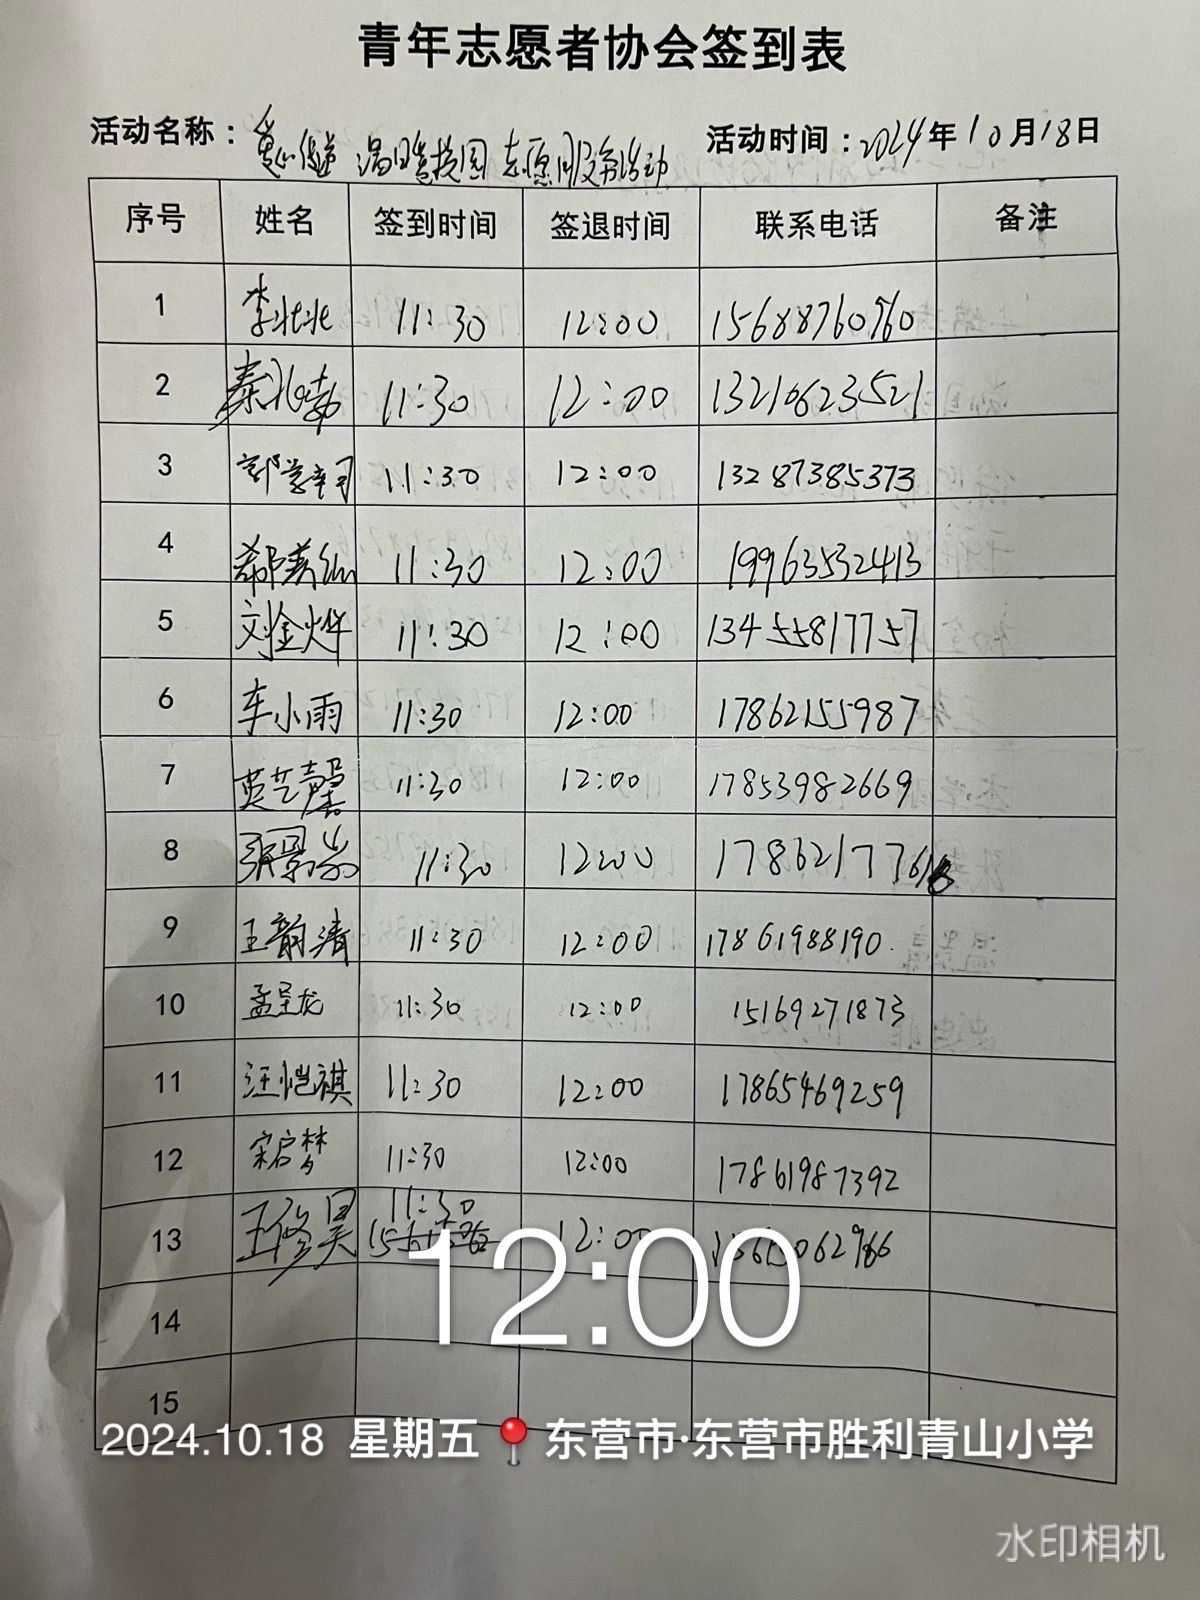 青年志愿者协会签到表
活动名称：爱心传递 温日暖校园 志愿服务活动 活动时间：2024年10月18日
序号 姓名 签到时间 签退时间 联系电话 备注
1 李北北 11:30 12:00 15688760960
2 秦兆勃 11:30 12:00 13210623521
3 11:30 12:00 13287385373
4 11:30 12:00 19963532413
5 刘金烨 11:30 12:00 13455817757
6 车小雨 11:30 12:00 17862155987
7 英艺馨 11:30 12:00 17853982669
8 张景岚 11:30 12:00
9 王韵清 11:30 12:00 17861988190
10 孟呈龙 11:30 12:00 15169271873
11 汪恺祺 11:30 12:00 17865469259
12 宋启梦 11:30 12:00 17861987392
13 王修昊 11:30 12:00
14
15
12:00
2024.10.18 星期五 东营市·东营市胜利青山小学
水印相机